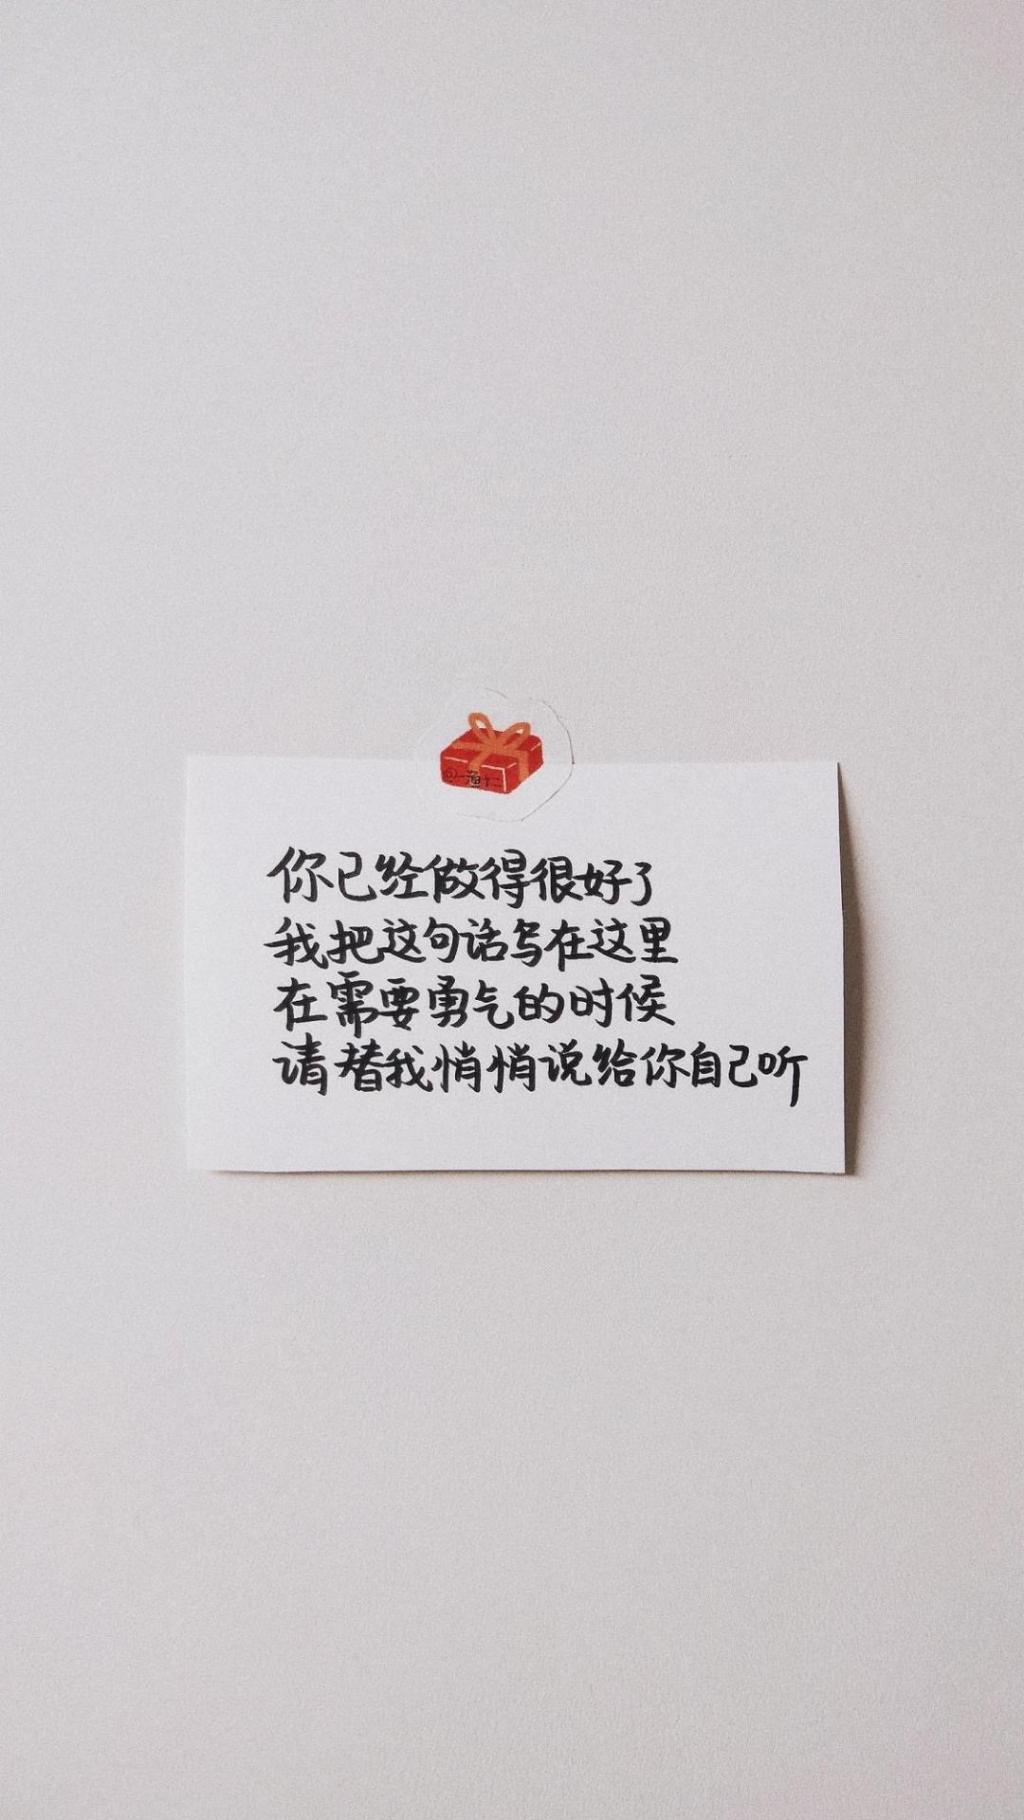 你已经做得很好了
我把这句话写在这里
在需要勇气的时候
请替我悄悄说给你自己听